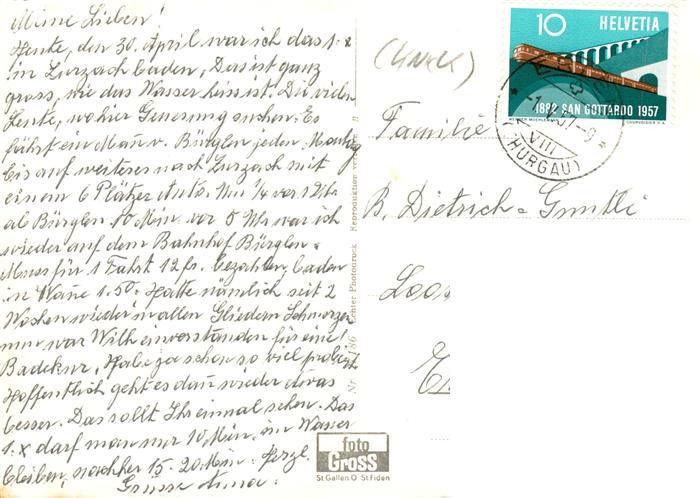 Meine Lieben!
Heute, den 30. April war ich das 1. x
in Zurzach baden, Das ist ganz
gross, wie das Wasser heiss ist. Die vielen
Leute, wo hier Genesung suchen. Es
führt ein Mann v. Bürglen jeden Montag
bis auf weiteres nach Zurzach mit
einem 6 Plätzer Auto. Mit 1/4 vor 1 Uhr
ab Bürglen 10 Min. vor 5 Uhr war ich
wieder auf dem Bahnhof Bürglen.
Muss für 1 Fahrt 12 fr. bezahlen, baden
in Wanne 1.50. Hatte nämlich seit 2
Wochen wieder in allen Gliedern Schmerzen
nun war Willi einverstanden für eine
Badekur, Habe ja schon so viel probiert
Hoffentlich geht es dann wieder etwas
besser. Das sollt Ihr einmal sehen. Das
1. x darf man nur 10 Min. im Wasser
bleiben, nachher 15-20 Min. Herzl.
Grüsse Anna.
Echter Photodruck Reproduktion
foto
Gross
St Gallen O St Fiden
10 HELVETIA
1882 SAN GOTTARDO 1957
COURVOISIER S.A.
VIII
(THURGAU)
Familie
B. Dietrich-Gmütli